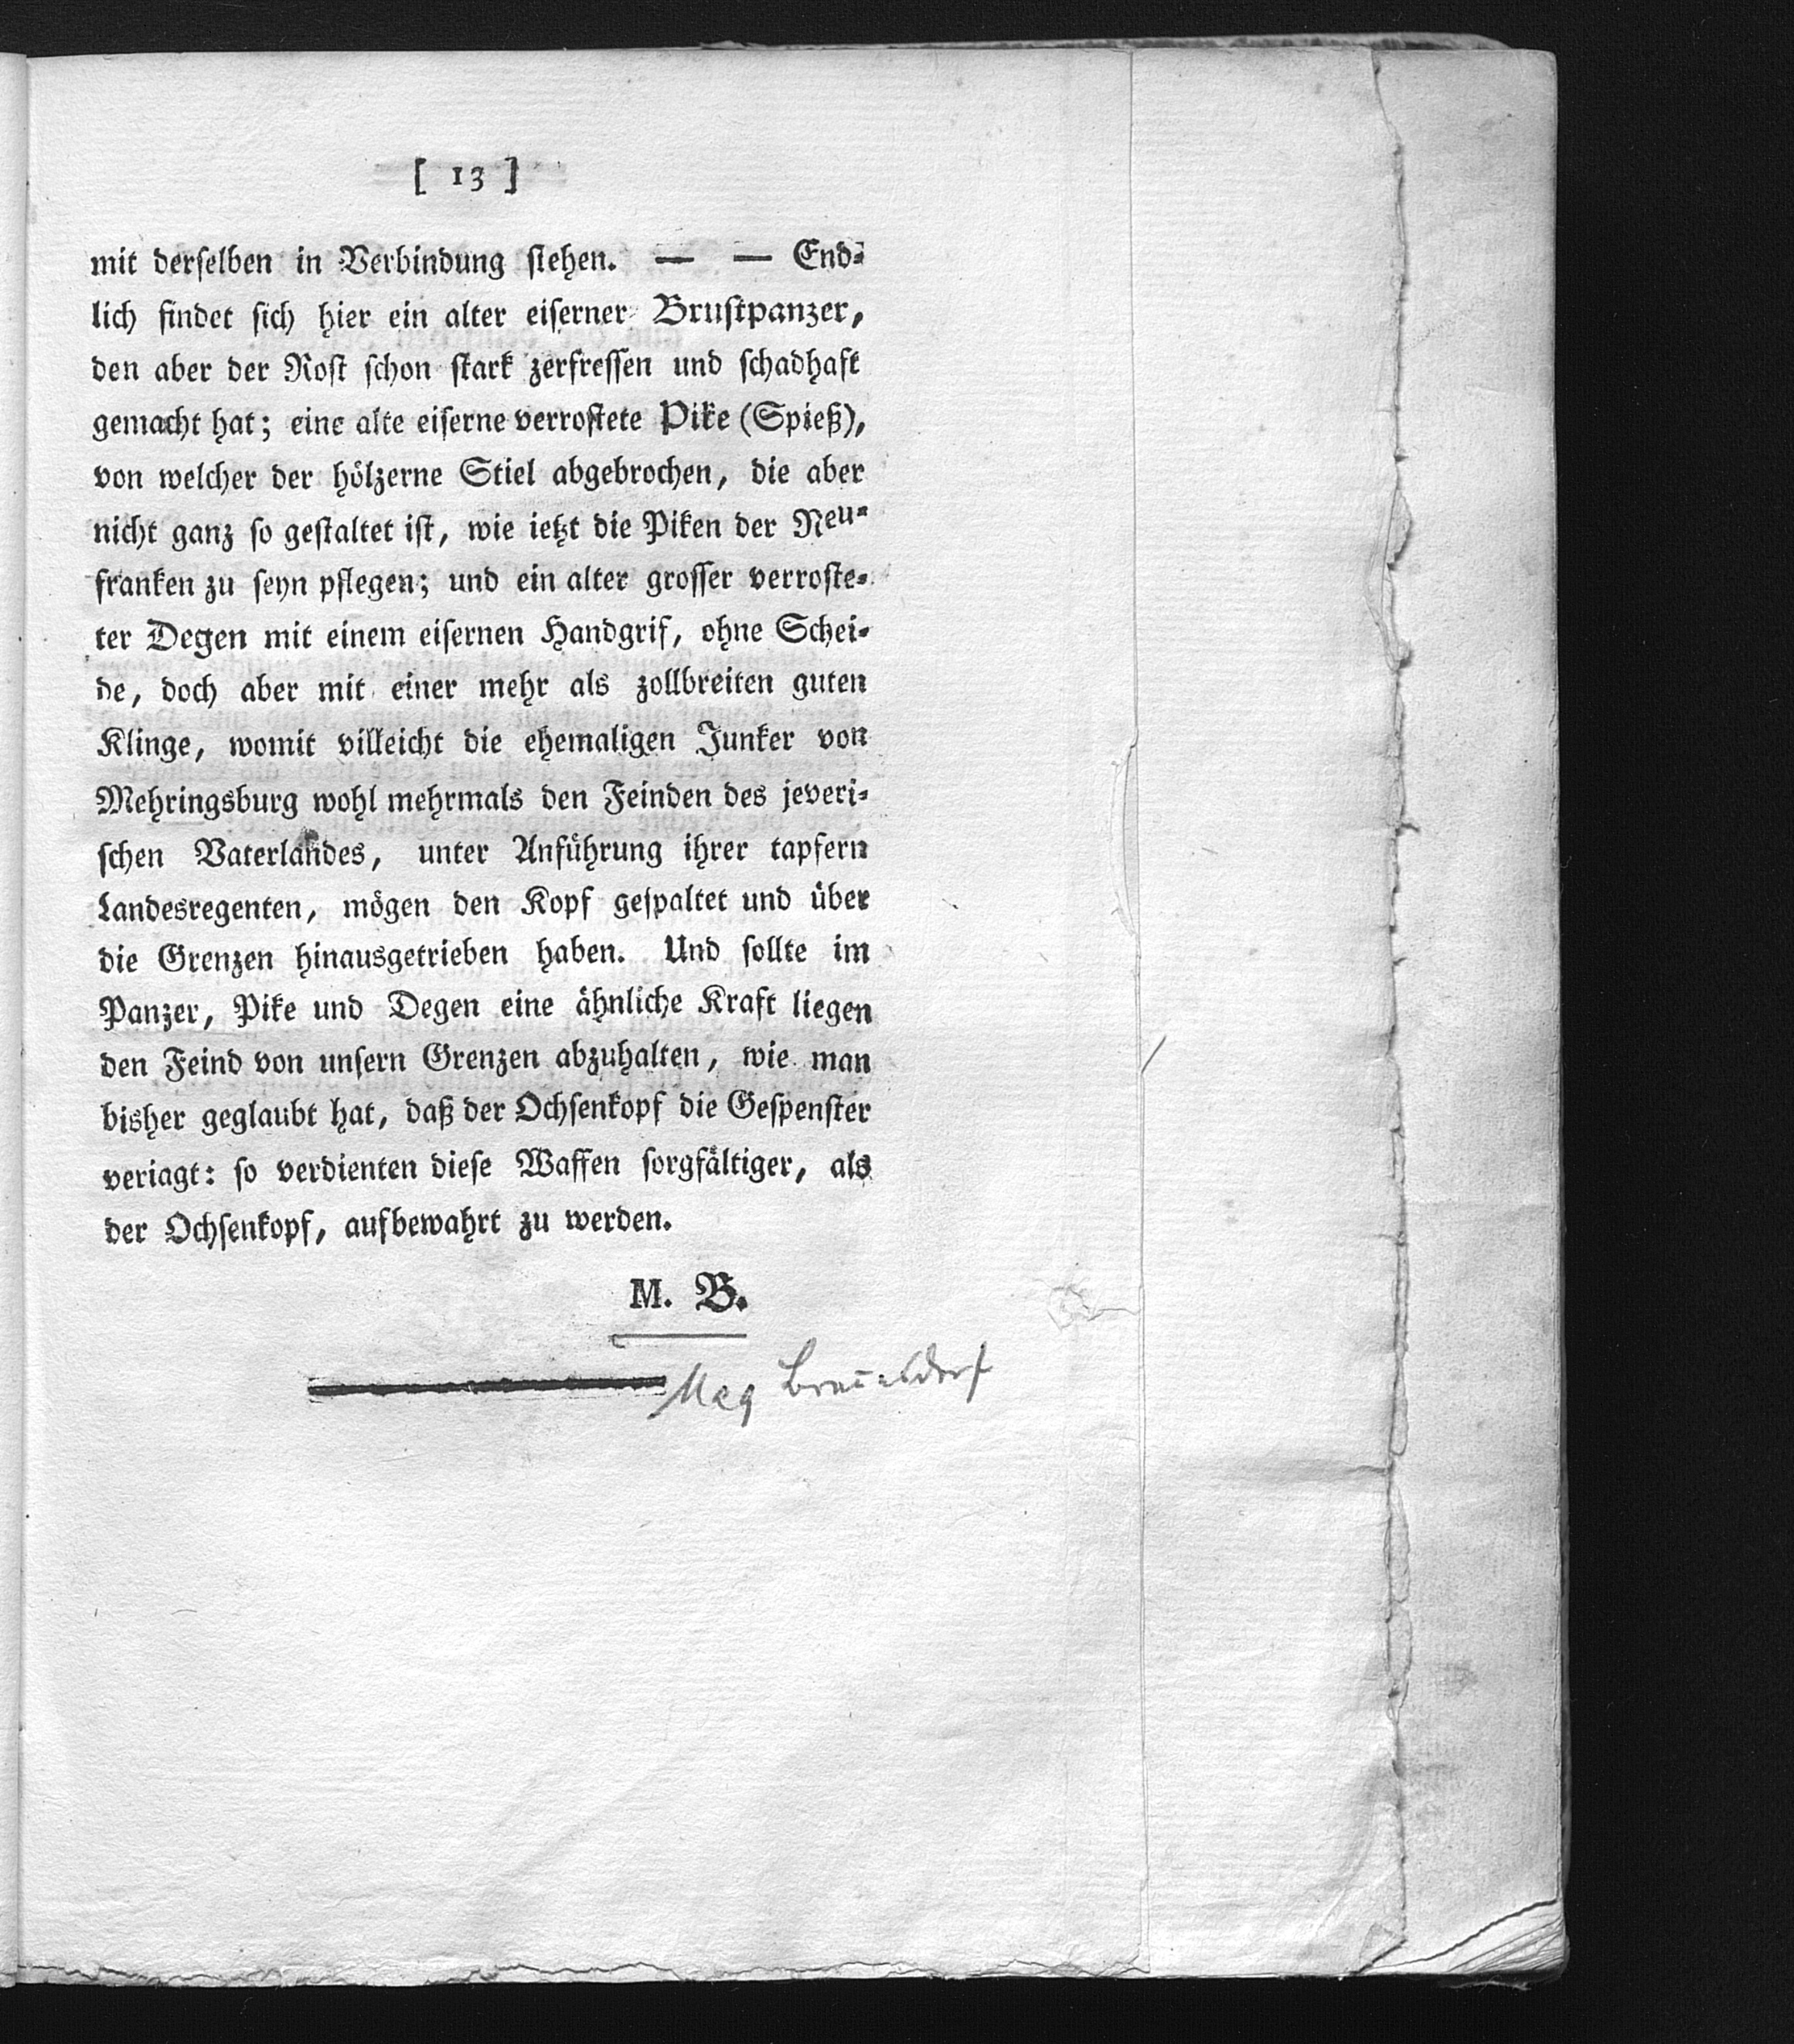 [ 13 ]
mit derselben in Verbindung stehen. — — End-
lich findet sich hier ein alter eiserner Brustpanzer,
den aber der Rost schon stark zerfressen und schadhaft
gemacht hat; eine alte eiserne verrostete Pike (Spieß),
von welcher der hölzerne Stiel abgebrochen, die aber
nicht ganz so gestaltet ist, wie ietzt die Piken der Neu-
franken zu seyn pflegen; und ein alter grosser verroste-
ter Degen mit einem eisernen Handgrif, ohne Schei-
de, doch aber mit einer mehr als zollbreiten guten
Klinge, womit villeicht die ehemaligen Junker von
Mehringsburg wohl mehrmals den Feinden des jeveri-
schen Vaterlandes, unter Anführung ihrer tapfern
Landesregenten, mögen den Kopf gespaltet und über
die Grenzen hinausgetrieben haben. Und sollte im
Panzer, Pike und Degen eine ähnliche Kraft liegen
den Feind von unsern Grenzen abzuhalten, wie man
bisher geglaubt hat, daß der Ochsenkopf die Gespenster
veriagt: so verdienten diese Waffen sorgfältiger, als
der Ochsenkopf, aufbewahrt zu werden.
M. B.
Mag